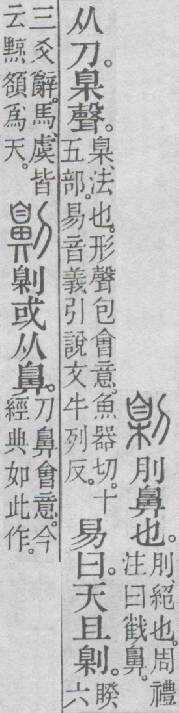 㓷刖鼻也。刖、絕也。周禮注曰𢧵鼻。
从刀。臬聲。臬、法也。形聲包會意。魚器切。十五部。易音義引說文牛列反。易曰。天且㓷。睽六
三爻辭。馬、虞皆云黥頟爲天。劓㓷或从鼻。刀鼻會意。今經典如此作。